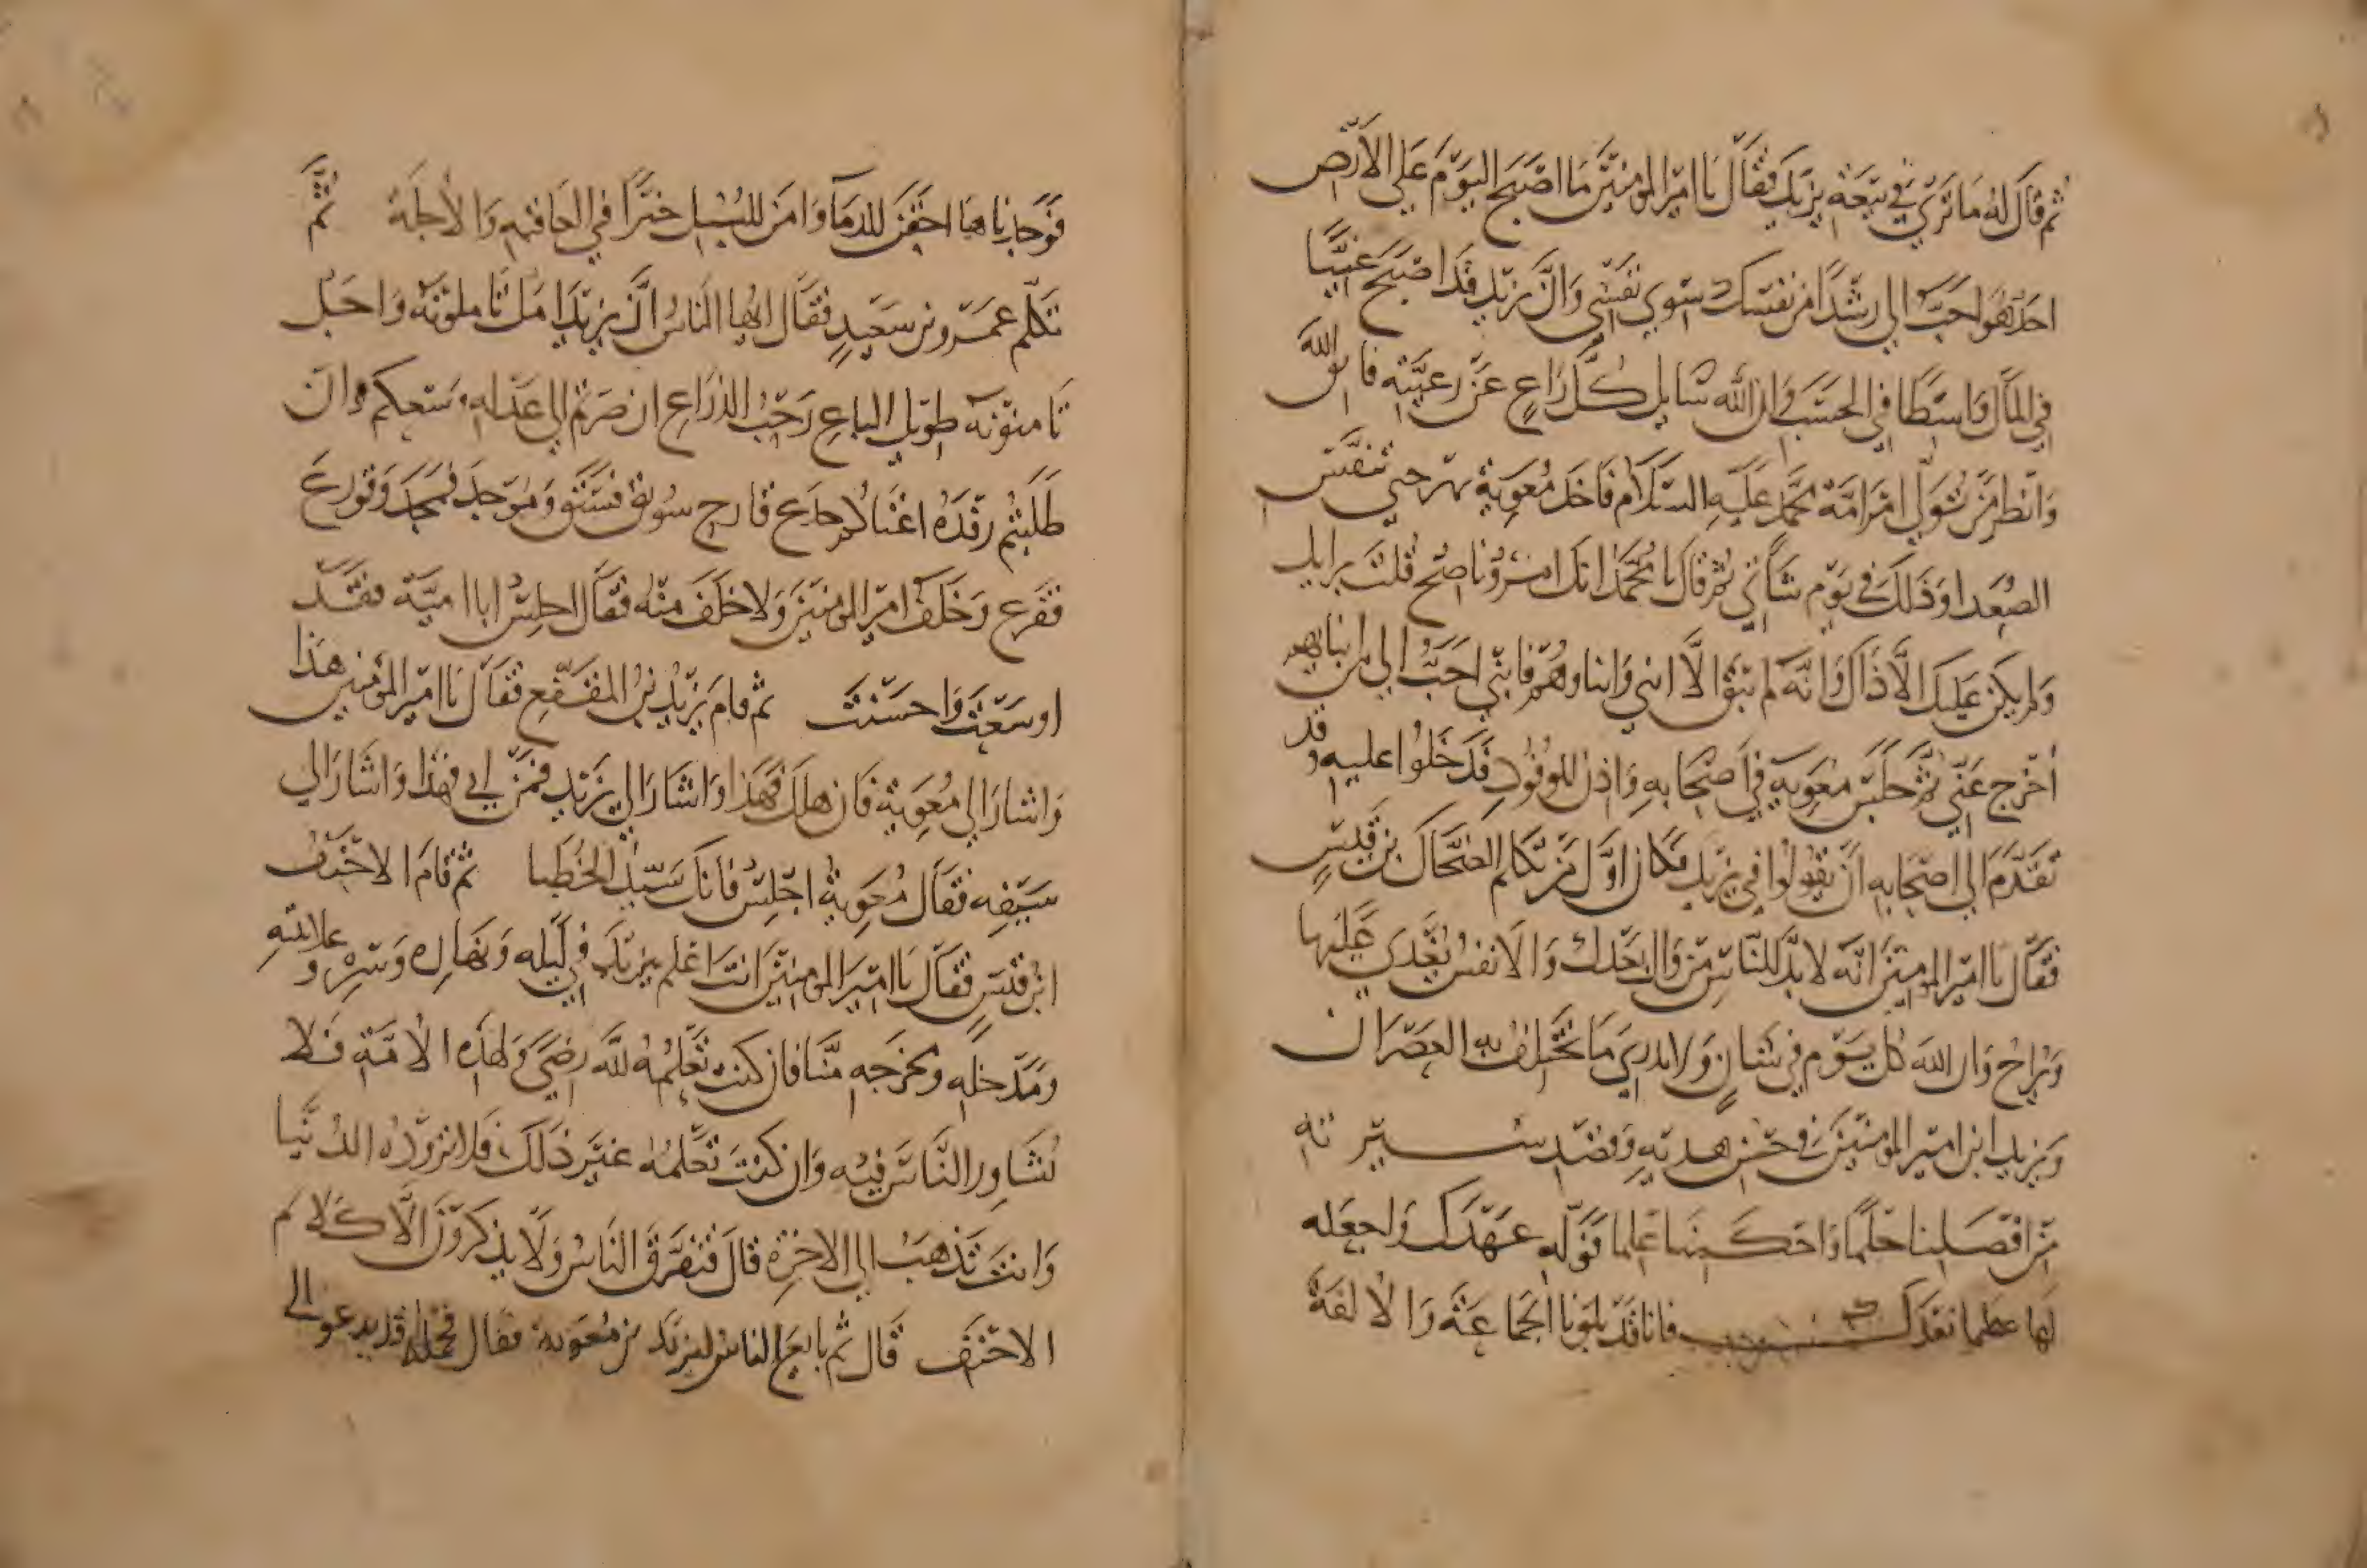 ثم قال له ما ترى في بيعة يزيد فقال يا امير المؤمنين ما اصبح اليوم على الارض
احد هو احب الي رشدا من نفسك سوى نفسي وان يزيد قد اصبح غنيا
في المال واسطا في الحسب وان الله سايل كل راع عن رعيته فاتق الله
وانظر من تولي امر امة محمد عليه السلام فاخذ معوية بهر حتى تنفس
الصعدا وذلك في يوم شاتي ثم قال يا محمد انك امرؤ ناصح قلت برايك
ولم يكن عليك الا ذاك وانه لم يبق الا ابني وابناوهم فابني احب الي من ابنايهم
اخرج عني ثم جلس معوية في اصحابه واذن للوفود فدخلوا عليه وقد
تقدم الى اصحابه ان يقولوا في يزيد فكان اول من تكلم الضحاك بن قيس
فقال يا امير المؤمنين انه لا بد للناس من وال بعدك والانفس يغدى عليها
ويراح وان الله كل يوم في شان ولا يدري ما يختلف به العصران
ويزيد ابن امير المؤمنين في حسن هديه وقصد سيرته
من افضلنا حلما واحكمنا علما فوله عهدك واجعله
لها علما بعدك فانا قد بلونا الجماعة والالفة
فوجدناهما احقن للدما وامن للسبل خيرا في العاقبة والاجلة ثم
تكلم عمرو بن سعيد فقال ايها الناس ان يزيد امل تاملونه واجل
تامنونه طويل الباع رحب الذراع ان صرتم الى عدله وسعكم وان
طلبتم رفده اغناكم جذع قارح سوبق فسبق وموجد فمجد وقورع
فقرع وخلف امير المؤمنين ولا خلف منه فقال اجلس ابا امية فقد
اوسعت واحسنت ثم قام يزيد بن المقفع فقال يا امير المؤمنين هذا
واشار الى معوية فان هلك فهذا واشار الى يزيد فمن ابى فهذا واشار الى
سيفه فقال معوية اجلس فانك سيد الخطبا ثم قام الاحنف
ابن قيس فقال يا امير المؤمنين انت اعلم بيزيد في ليله ونهاره وسره وعلانيته
ومدخله ومخرجه منا فان كنت تعلمه لله رضى ولهذه الامة فلا
تشاور الناس فيه وان كنت تعلمه غير ذلك فلا تزوده الدنيا
وانت تذهب الى الاخرة قال فتفرق الناس ولا يذكرون الا كلام
الاحنف قال ثم بايع الناس ليزيد بن معوية فقال رجل وقد دعوالى